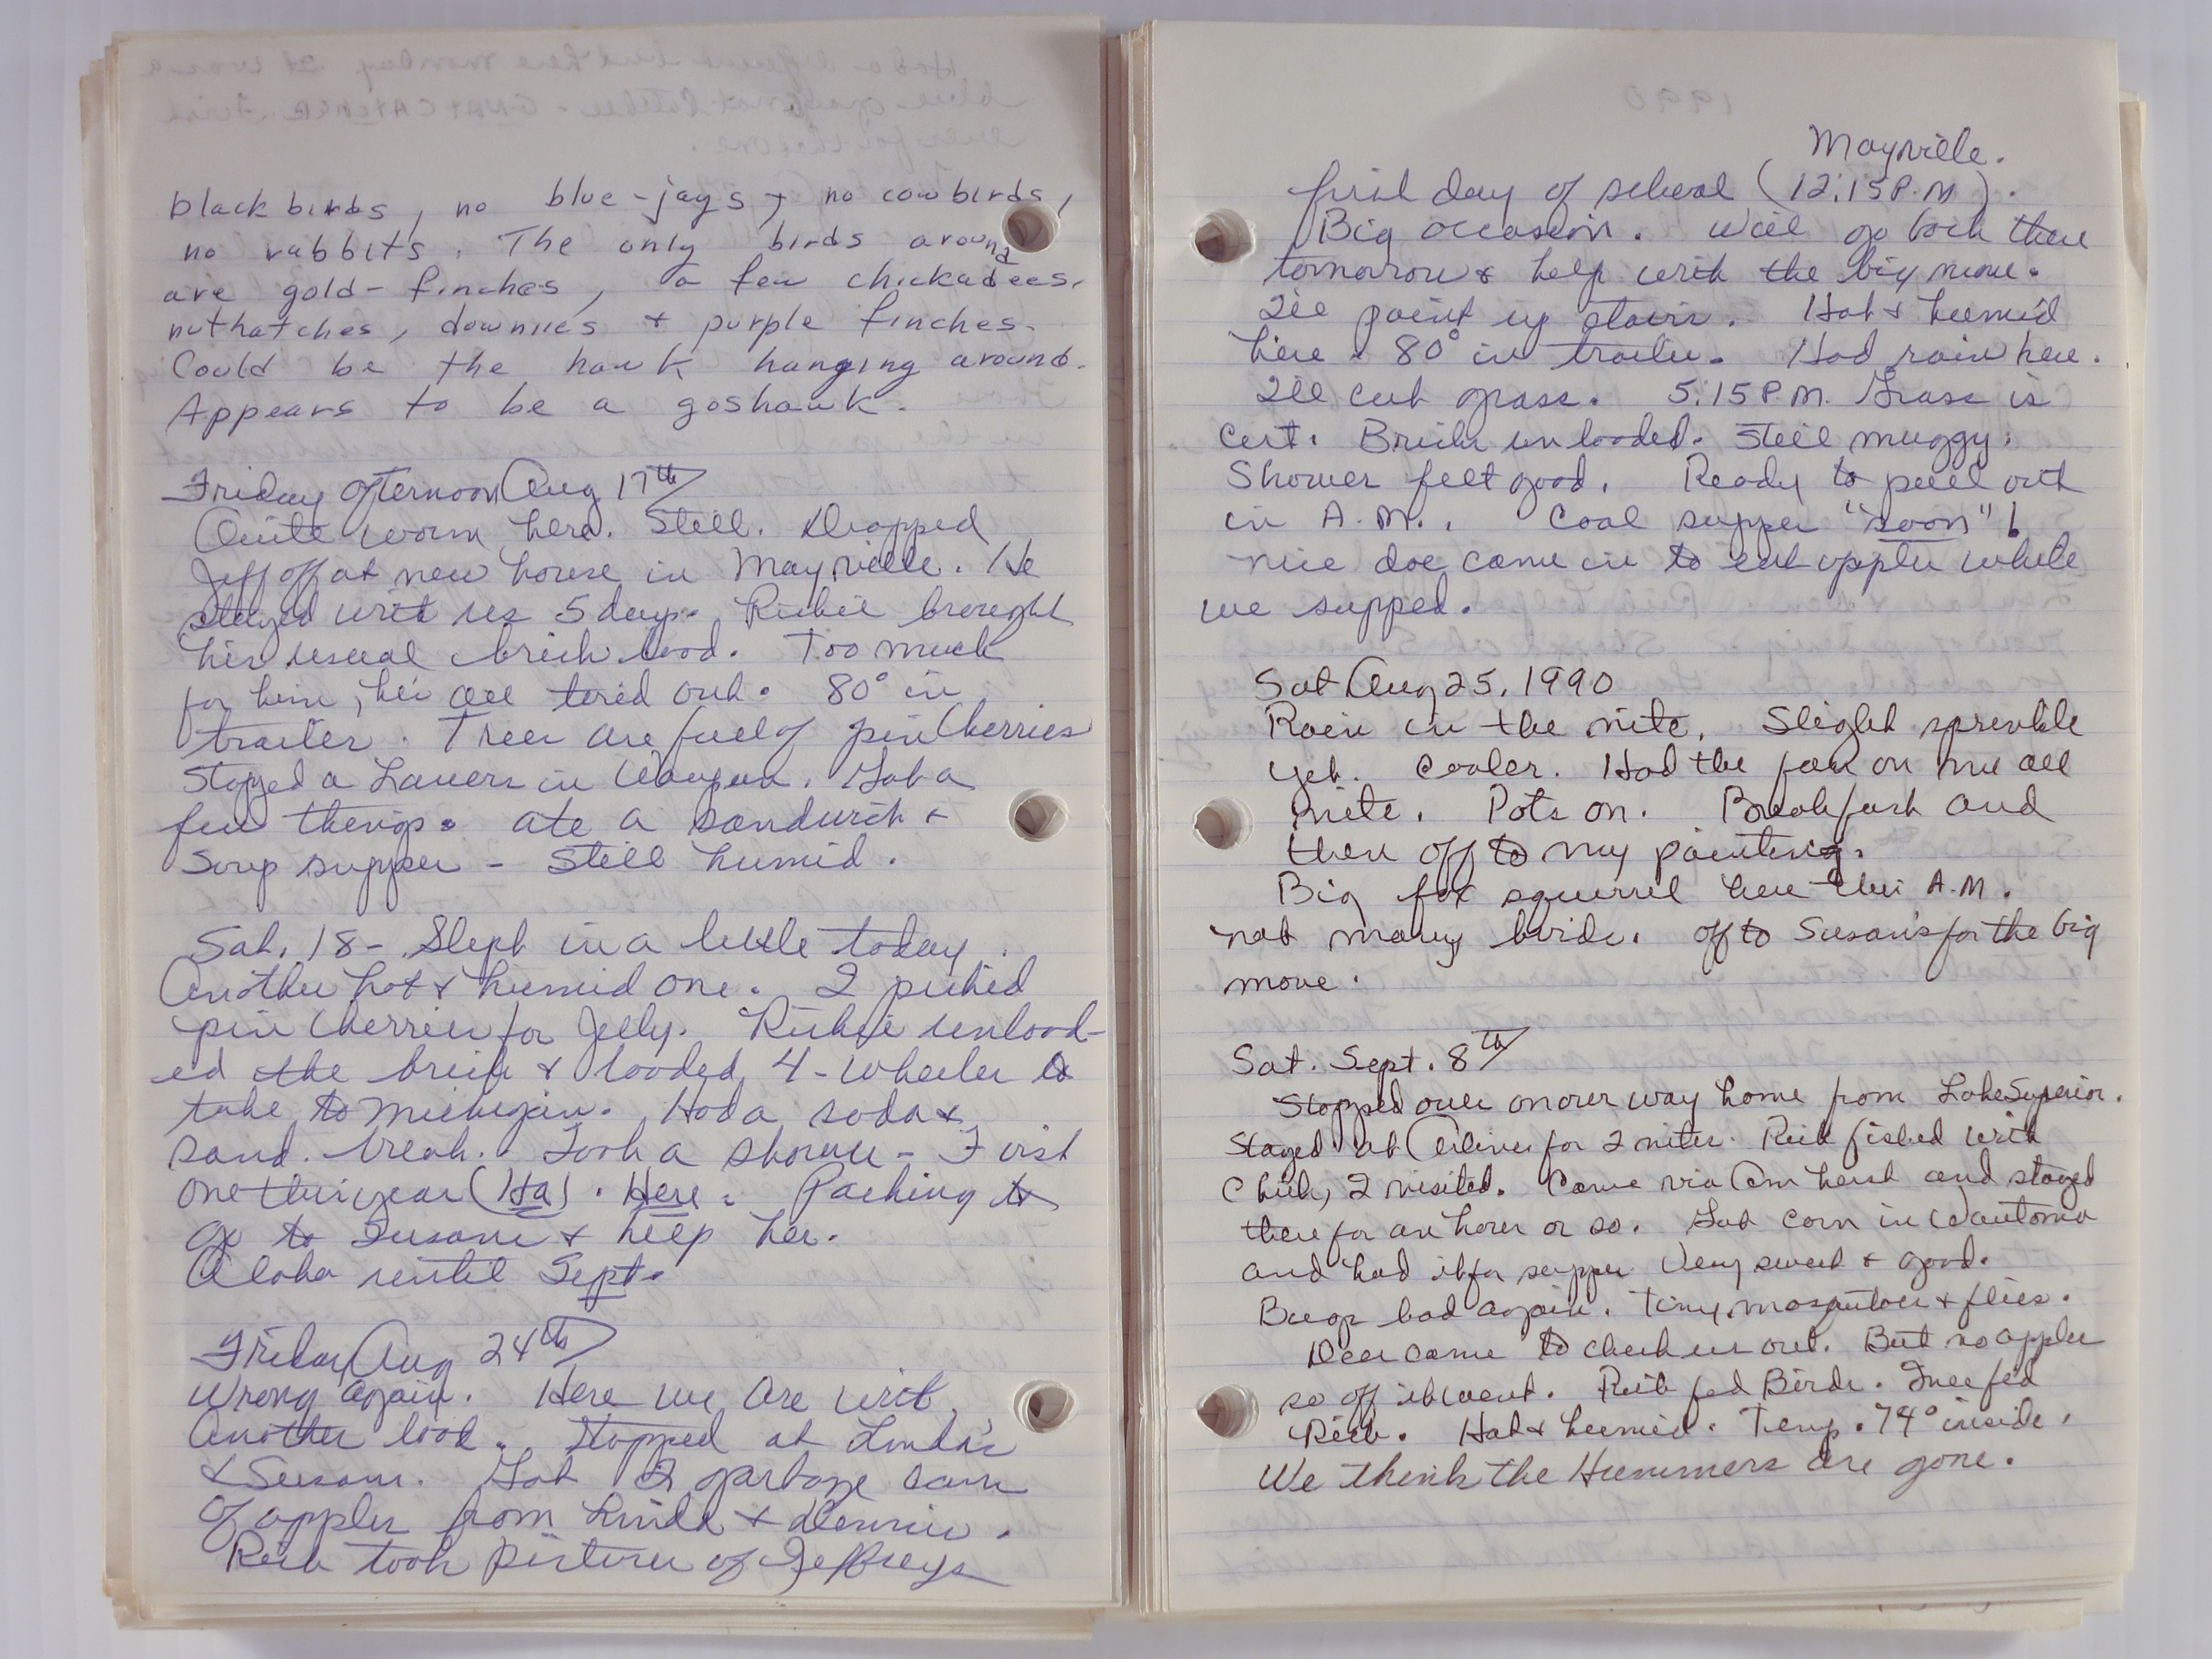 black birds, no blue-jays, no cowbirds,
no rabbits. The only birds around
are gold-finches, a few chickadees,
nuthatches, downies + purple finches.
Could be the hawk hanging around.
Appears to be a goshawk.
Friday afternoon Aug 17th
Quite warm here. Still. Dropped
Jeff off at new house in Mayville. He
stayed with us 5 days. Richie brought
his usual brick load. Too much
for him, he's all tired out. 80° in
trailer. Trees are full of pin Cherries
Stopped a Lauers in Waupun. Got a
few things. ate a sandwich +
soup supper - still humid.
Sat. 18 - Slept in a little today.
Another hot + humid one. I picked
pin cherries for Jelly. Richie unload-
ed the brick + loaded 4-wheeler to
take to Michigan. Had a soda +
sand. break. Took a shower - First
one this year (Ha). Here. Packing to
go to Susans + help her.
Aloha until Sept.
Friday Aug 24th
Wrong again. Here we are with
Another load. Stopped at Linda's
& Susans. Got 2 garbage cans
of apples from Linda + Dennis.
Rich took picture of Jeffreys
1990
Mayville.
first day of school (12:15 P.M).
Big occasion. Will go back there
tomorrow & help with the big move.
I'll paint up stairs. Hot & humid
here. 80° in trailer. Had rain here.
I'll cut grass. 5:15 P.M. Grass is
cut. Bricks unloaded. Still muggy.
Shower felt good. Ready to pull out
in A.M.. Cool supper "soon"!
nice doe came in to eat apples while
we supped.
Sat Aug 25, 1990
Rain in the nite. Slight sprinkle
yet. Cooler. Had the fan on me all
nite. Pots on. Breakfast and
then off to my painting.
Big fox squirrel here this A.M.
not many birds. off to Susan's for the big
move.
Sat. Sept. 8th
Stopped over on our way home from Lake Superior.
Stayed at for 2 nites. Rich fished with
Chuck, I visited. Came via Amherst and stayed
there for an hour or so. Got corn in Wautoma
and had it for supper Very sweet & good.
Bugs bad again. Tiny mosquitoes + flies.
Deer came to check us out. But no apples
so off it went. Rich fed Birds. I fed
Rich. Hot & humid. Temp. 74° inside.
We think the Hummers are gone.